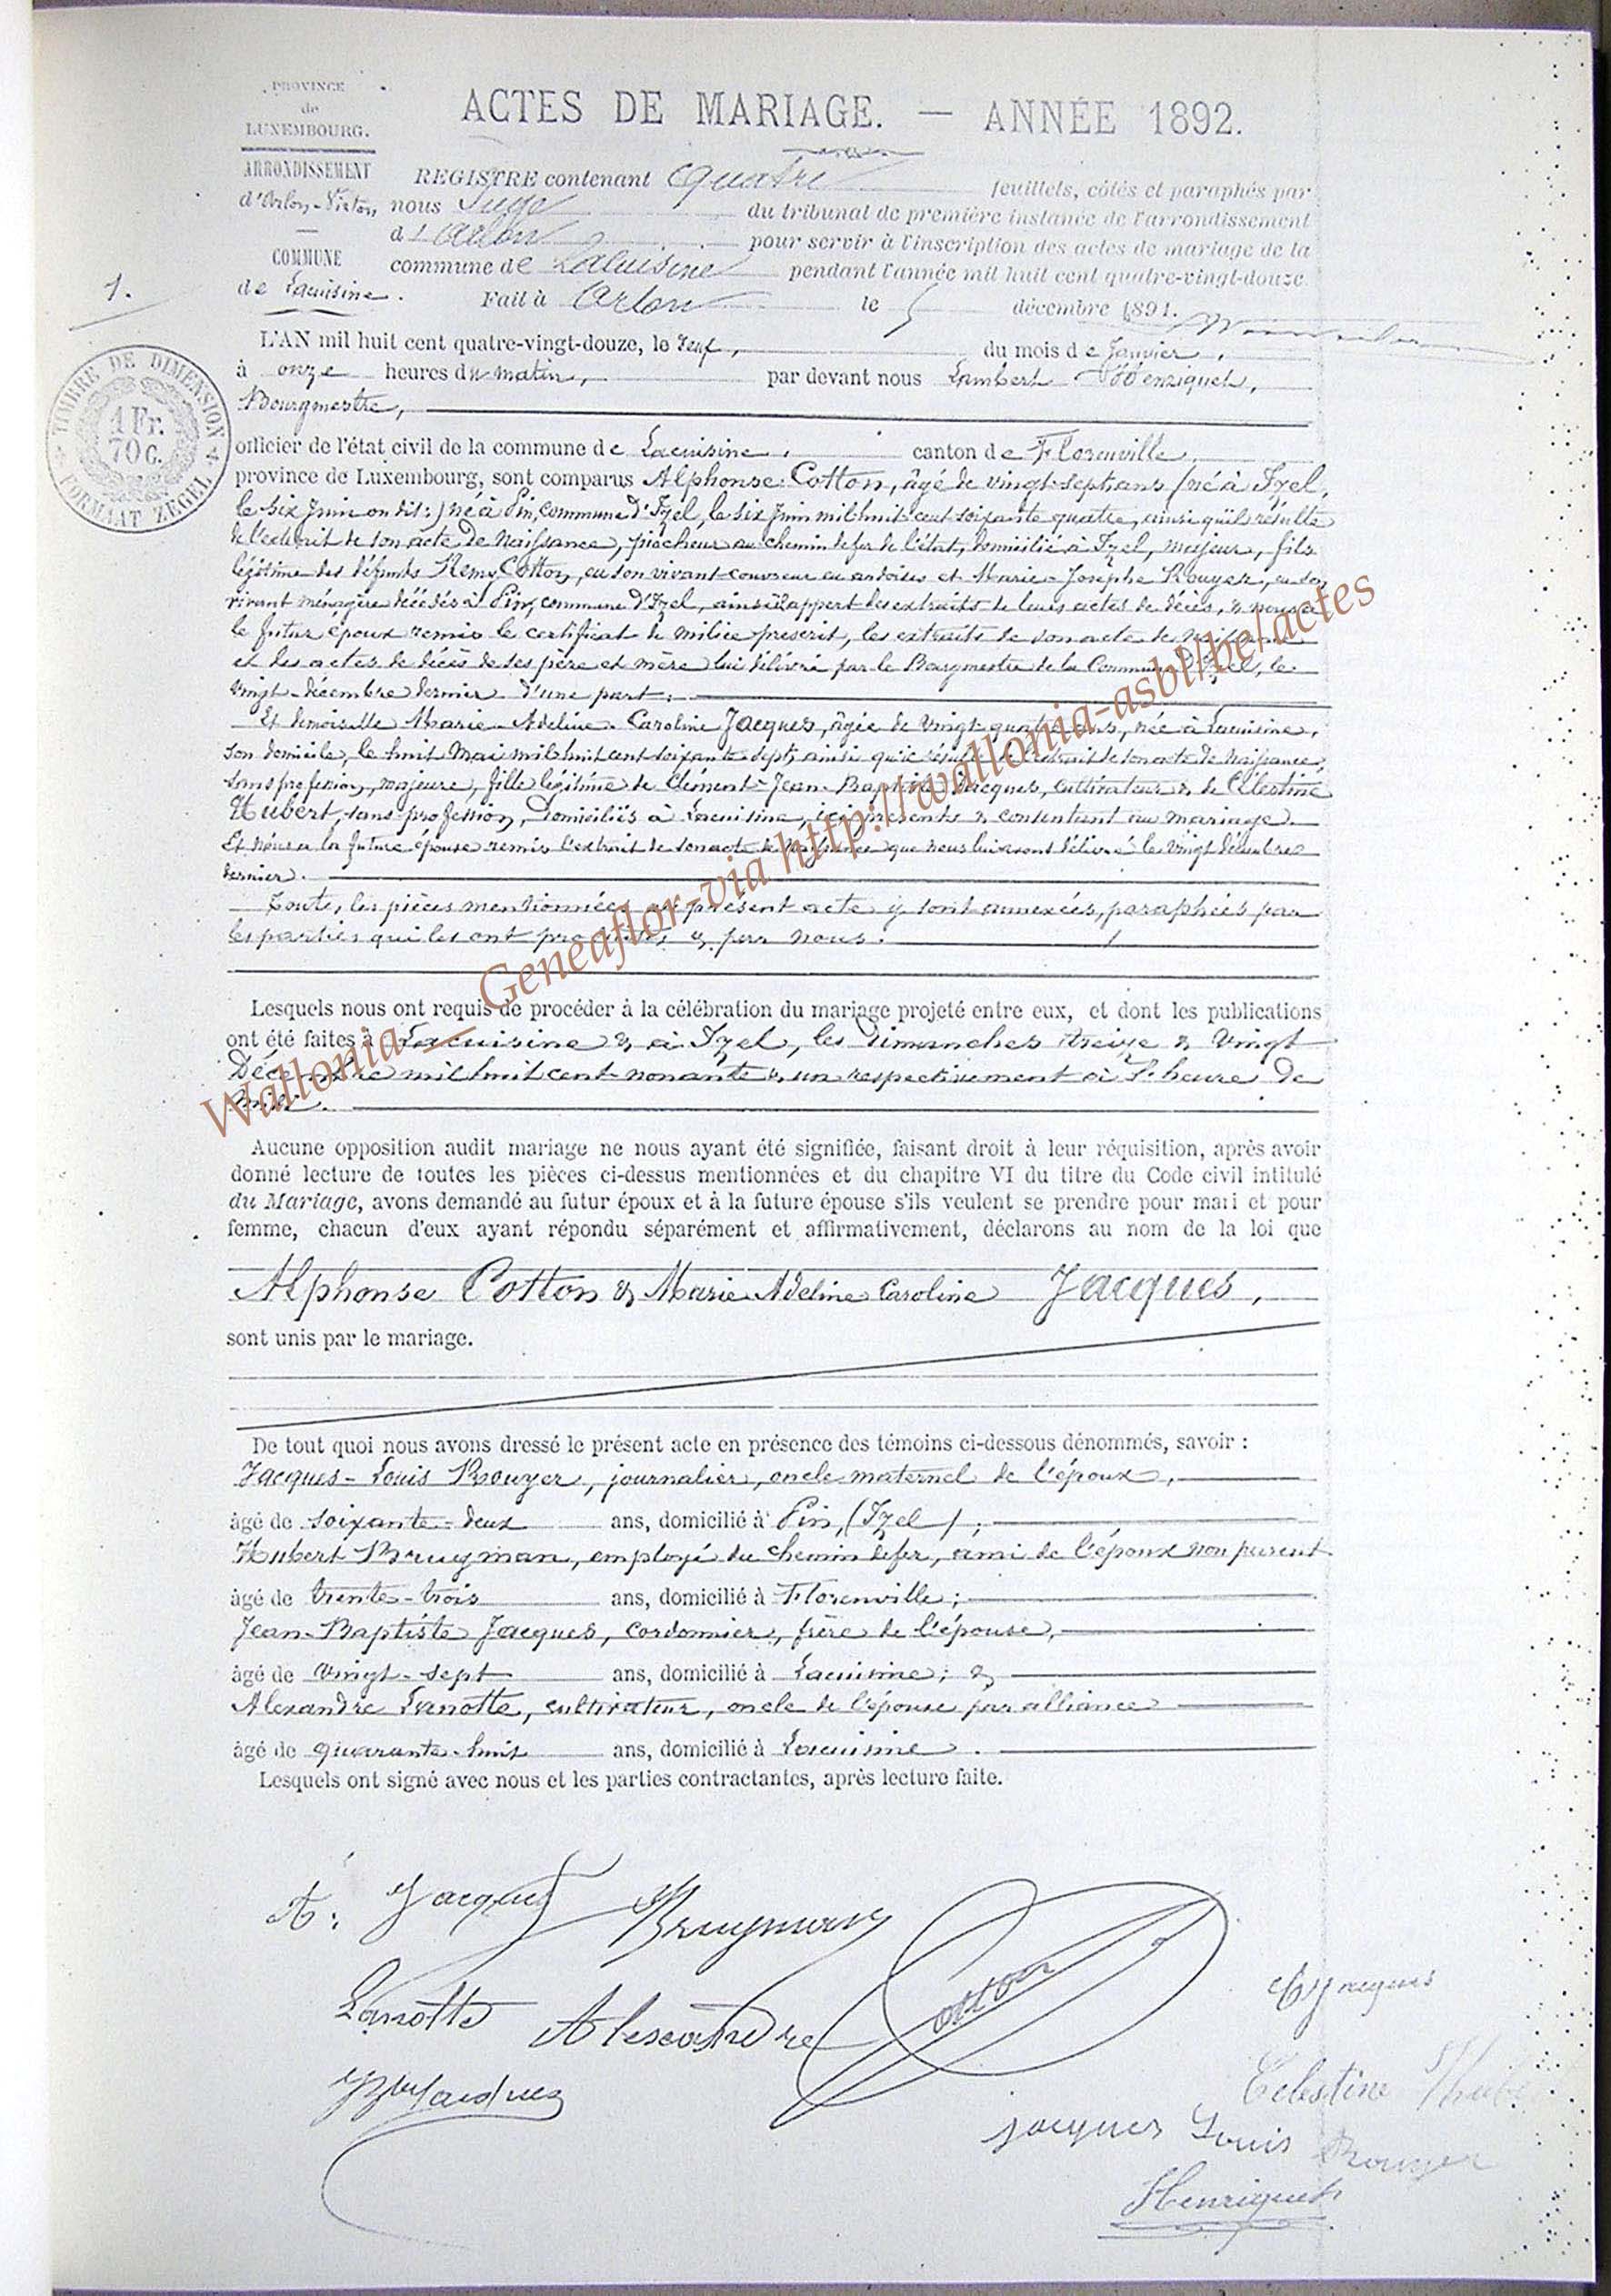 PROVINCE
de
LUXEMBOURG.
ARRONDISSEMENT
d'Arlon-Virton
COMMUNE
de Lacuisine.
ACTES DE MARIAGE. — ANNÉE 1892.
REGISTRE contenant quatre feuillets, côtés et paraphés par
nous Juge du tribunal de première instance de l'arrondissement
d'Arlon pour servir à l'inscription des actes de mariage de la
commune de Lacuisine pendant l'année mil huit cent quatre-vingt-douze.
Fait à Arlon le 5 décembre 1891.
1.
TIMBRE DE DIMENSION
1 Fr.
70 C.
FORMAAT ZEGEL
L'AN mil huit cent quatre-vingt-douze, le neuf, du mois de Janvier,
à onze heures du matin, par devant nous Lambert Henriquet,
Bourgmestre,
officier de l'état civil de la commune de Lacuisine, canton de Florenville,
province de Luxembourg, sont comparus Alphonse Cotton, âgé de vingt-sept ans (né à Izel,
le six Juin on dit:) né à Pin, commune d'Izel, le six Juin mil huit cent soixante quatre, ainsi qu'il résulte
de l'extrait de son acte de naissance, piocheur au chemin de fer de l'état, domicilié à Izel, majeur, fils
légitime des défunts Remy Cotton, en son vivant couvreur en ardoises et Marie-Josephe Rouyer, en son
vivant ménagère décédés à Pin, commune d'Izel, ainsi appert des extraits de leurs actes de décès, & nous a
le futur époux remis le certificat de milice prescrit, les extraits de son acte de naissance
et des actes de décès de ses père et mère lui délivré par le Bourgmestre de la Commune d'Izel, le
vingt décembre dernier d'une part;
Et demoiselle Marie-Adeline-Caroline Jacques, âgée de vingt-quatre ans, née à Lacuisine,
son domicile, le huit Mai mil huit cent soixante sept, ainsi qu'il résulte de l'extrait de son acte de naissance,
sans profession, majeure, fille légitime de Clément-Jean-Baptiste Jacques, cultivateur & de Célestine
Hubert, sans profession, domiciliés à Lacuisine, ici présents & consentant au mariage.
Et nous a la future épouse remis l'extrait de son acte de naissance que nous lui avons délivré le vingt décembre
dernier.
Toutes les pièces mentionnées au présent acte y sont annexées, paraphées par
les parties qui les ont produites & par nous.
Lesquels nous ont requis de procéder à la célébration du mariage projeté entre eux, et dont les publications
ont été faites à Lacuisine & à Izel, les dimanches treize & vingt
Décembre mil huit cent nonante & un respectivement à l'heure de
midi.
Aucune opposition audit mariage ne nous ayant été signifiée, faisant droit à leur réquisition, après avoir
donné lecture de toutes les pièces ci-dessus mentionnées et du chapitre VI du titre du Code civil intitulé
du Mariage, avons demandé au futur époux et à la future épouse s'ils veulent se prendre pour mari et pour
femme, chacun d'eux ayant répondu séparément et affirmativement, déclarons au nom de la loi que
Alphonse Cotton & Marie Adeline Caroline Jacques,
sont unis par le mariage.
De tout quoi nous avons dressé le présent acte en présence des témoins ci-dessous dénommés, savoir :
Jacques-Louis Rouyer, journalier, oncle maternel de l'époux,
âgé de soixante-deux ans, domicilié à Pin, (Izel);
Hubert Bruyman, employé du chemin de fer, ami de l'époux non parent
âgé de trente-trois ans, domicilié à Florenville;
Jean-Baptiste Jacques, cordonnier, frère de l'épouse,
âgé de vingt-sept ans, domicilié à Lacuisine; &
Alexandre Lanotte, cultivateur, oncle de l'épouse par alliance
âgé de quarante-huit ans, domicilié à Lacuisine.
Lesquels ont signé avec nous et les parties contractantes, après lecture faite.
A: Jacques Bruyman
Lanotte Alexandre Cotton
Jacques
Jacques
Celestine Hubert
Jacques Louis Rouyer
Henriquet
Wallonia – Geneaflor-via http://wallonia-asbl/be/actes